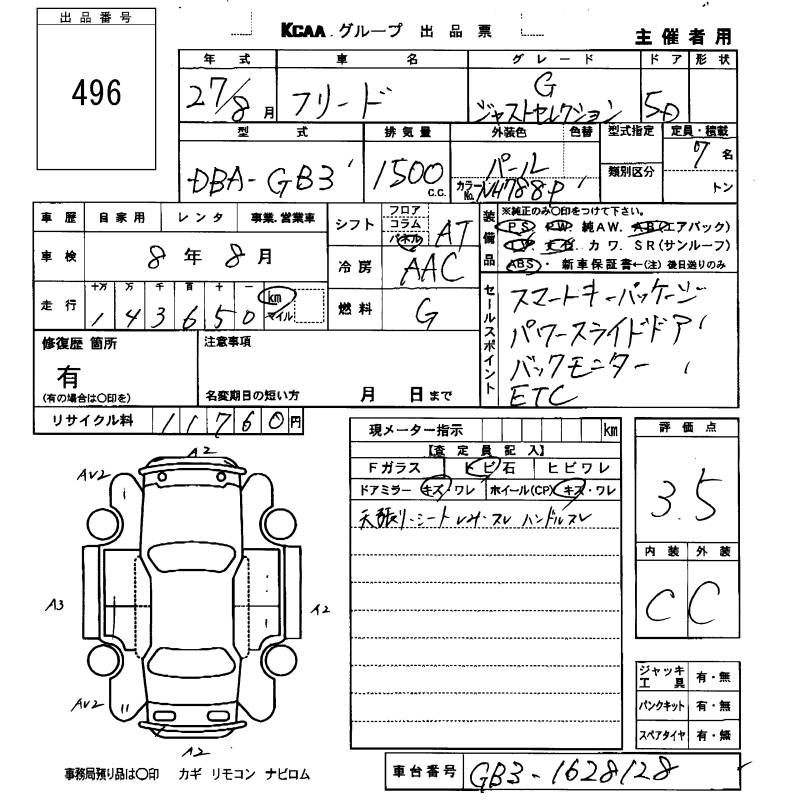 出品番号
496
KCAA グループ 出品票
主催者用
年式 車名 グレード ドア 形状
27/8月 フリード G ジャストセレクション 5D
型式 排気量 外装色 色替 型式指定 定員・積載
DBA-GB3 1500 C.C. パール カラーNo. NH788P 類別区分 7名
トン
車歴 自家用 レンタ 事業.営業車
シフト フロア コラム パネル AT
車検 8年8月
冷房 AAC
走行 十万 万 千 百 十 一 km マイル
143650
燃料 G
装備品
※純正のみ〇印をつけて下さい。
PS PW 純AW. AB(エアバック)
カワ. SR(サンルーフ)
ABS・ 新車保証書←(注) 後日送りのみ
セールスポイント
スマートキーパッケージ
パワースライドドア
バックモニター
ETC
修復歴 箇所
有
(有の場合は〇印を)
注意事項
名変期日の短い方 月 日まで
リサイクル料 11760円
現メーター指示 km
【査定員記入】
Fガラス トビ石 ヒビワレ
ドアミラー キズ・ワレ ホイール(CP) キズ・ワレ
天張り・シート シミ・スレ ハンドルスレ
評価点
3.5
内装 外装
C C
A2
AV2
A3
A2
AV2
A2
ジャッキ工具 有・無
パンクキット 有・無
スペアタイヤ 有・無
事務局預り品は〇印 カギ リモコン ナビロム
車台番号 GB3-1628128